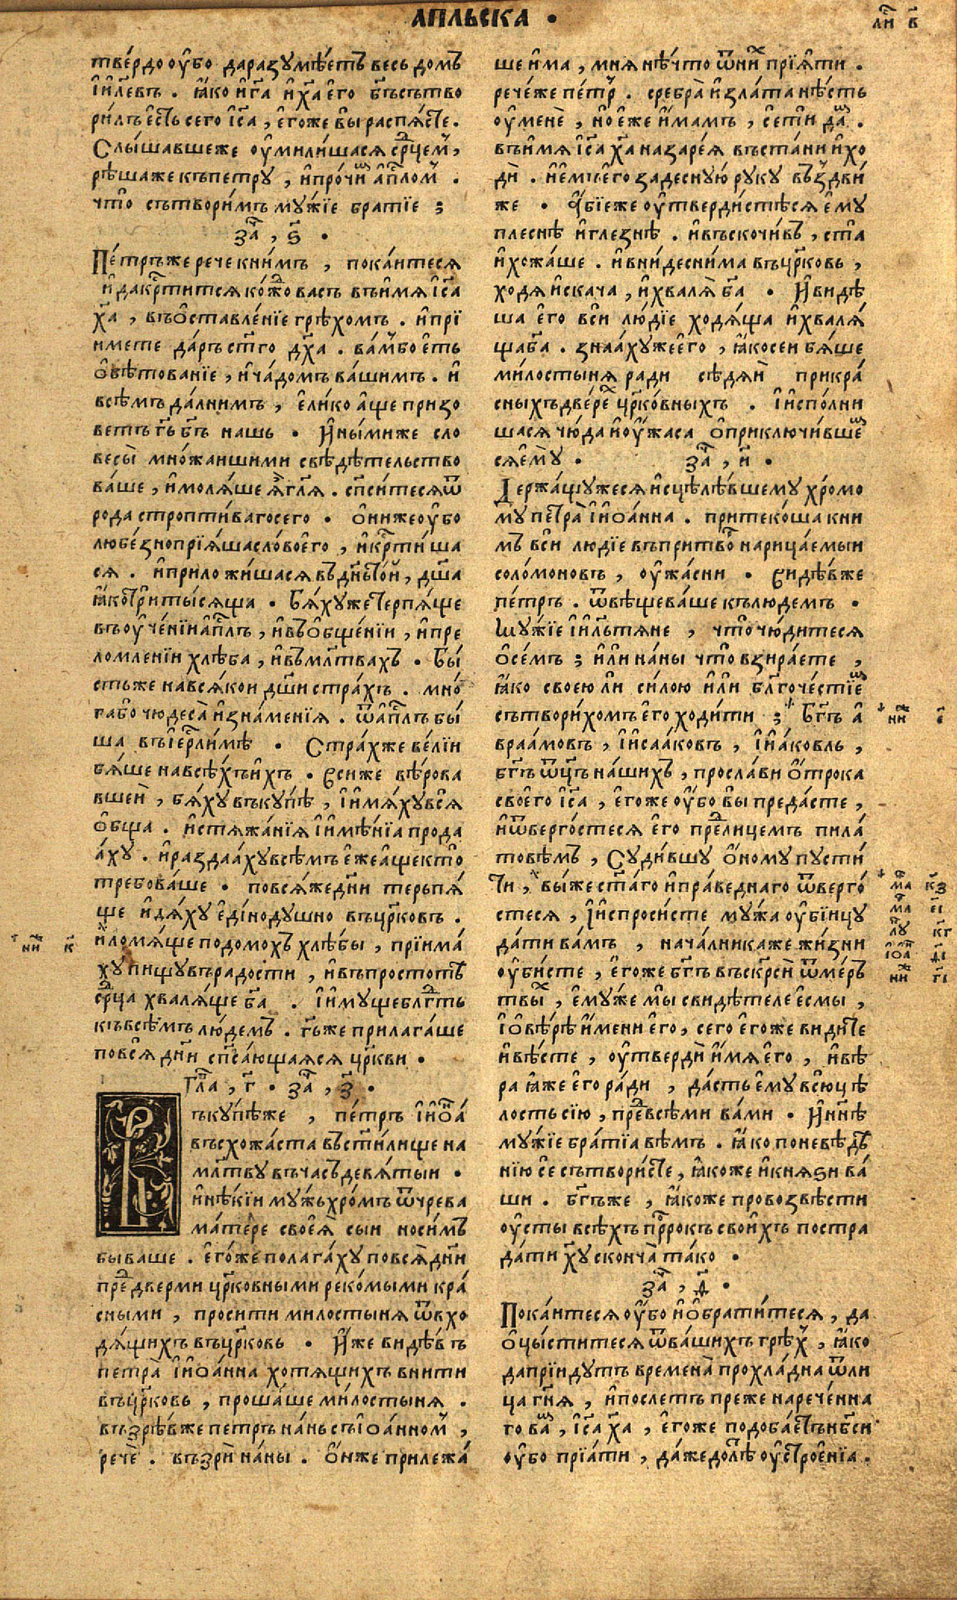 АПЛЬСКА •
ли҃ в҃
твердо оубо даразумѣетъ весь домъ
і҃илевъ . ꙗко и҃ га и҃ х҃а его бг҃ъсътво
рилъ есть сего і҃са , егоже вы распясте .
Слышавшеже оумилишася ср҃цемъ ,
рѣшаже къпетру , и прочи҃м ап҃лом .
что сътворимъ мужїе братїе ;
за҃ , ѕ҃ •
Петръже рече книмъ , покаитеся
и дакр҃тится кождо васъ въимя і҃са
х҃а , въоставленїе грѣхомъ . и прї
имете даръ ст҃го дх҃а . вамбо есть
обѣтованїе , и чадомъ вашимъ . и
всѣмъ далнимъ , елико аще призо
ветъ г҃ь бг҃ъ нашь • Инымиже сло
весы множаишими свѣдѣтельство
ваше , и моляше я҃ гл҃я . сп҃ситеся ѿ
рода строптивагосего • ониже оубо
любезнопрїяша слово его , и кр҃тиша
ся . и приложишася въдн҃ьтои , дш҃а
ꙗкотритысяща • Бяхуже терпяще
въоученїи ап҃лъ , и въобщенїи , и пре
ломленїи хлѣба , и въмл҃твахъ • Бы
стьже навсякои дш҃и страхъ . мно
габо чюдеса и знаменїя . ѿап҃лъ бы
ша въіер҃лимѣ • Страхже велїи
бяше навсѣхъихъ • Всиже вѣрова
вшеи , бяху въкупѣ , і имяхувся
обща . и стяжанїя і имѣнїа прода
аху . и раздааху всѣмъ ежеаще кто
требоваше • повсяжедн҃и терьпя
ще и дяху единодушно въцр҃ковъ .
и ломяще подомохъ хлѣбы , прїима
ху пищу въ радости , и въпростотѣ
ср҃ца хваляще б҃а . і имуще блг҃ть
къвсѣмъ людемъ . г҃ьже прилагаше
повся дн҃и сп҃сающаяся цр҃кви •
нн҃ к҃
гла҃ , г҃ • за҃ , з҃ •
Въкупѣже , петръ і иоа
въсхожаста въст҃илище на
мл҃тву въчасъ девятыи •
и нѣкїи мужьхромъ ѿчрева
матере своея сыи носимъ
бываше . егоже полагаху повся дн҃и
пред дверми цр҃ковными рекомыми кра
сными , просити милостыня ѿвхо
дящихъ въцр҃ковь • Иже видѣвъ
петра і иоанна хотящихъ внити
въцр҃ковь , прошаше милостыня .
възрѣвже петръ нань съіоанном ,
рече . възри наны . онже прилежа
ше има , мня нѣчто ѿних прїяти .
речеже петр . сребра и злата нѣсть
оу мене , но еже имамъ , сети даю .
въимя і҃са х҃а назарея въстани и хо
ди . и емъ его задесную руку въздви
же • абїеже оутвердистѣся ему
плеснѣ и глезнѣ . и въскочивъ , ста
и хожаше . и вниде снима въцр҃ковь ,
ходя и скача , и хваля б҃а • И видѣ
ша его вси людїе ходяща и хваля
ща б҃а . знаахужеего , ꙗко сеи бяше
милостыня ради сѣдяи прикра
сныхъ дверех цр҃ковныхъ . І исполни
шася чюда и оужаса оприключившеш
ся ему •
за҃ , и҃ •
Держащужеся исцѣлѣвшему хромо
му петра і иоанна . притекоша кни
мъ вси людїе въпритвор нарицаемыи
соломоновъ , оужасни • Видѣвже
петръ . ѿвѣщеваше къ людемъ •
Мужїе і҃ильтяне , что чюдитеся
осемъ ; или наны что взираете ,
ꙗко своею ли силою или блг҃очестїем
сътворихомъ его ходити ; Бг҃ъ а
враамовъ , і исааковъ , і иаковль ,
бг҃ъ ѿц҃ъ нашихъ , прослави отрока
своего і҃са , егоже оубо вы предасте ,
и ѿвергостеся его пред лицемъ пила
товѣмъ , Судившу оному пусти
ти , выже ст҃аго и праведнаго ѿверго
стеся , і испросисте мужа оубїицу
дати вамъ , началникаже жизни
оубисте , егоже бг҃ъ въскр҃си ѿмерь
твых , емуже мы свидѣтеле есмы ,
і о вѣрѣ имени его , сего егоже видите
и вѣсте , оутверди имя его , и вѣ
ра ꙗже его ради , дасть ему всю цѣ
лость сїю , пред всѣми вами • И нн҃ѣ
мужїе братїа вѣмъ . ꙗко поневѣдѣ
нїю се сътвористе , ꙗкоже и князи ва
ши . бг҃ъже , ꙗкоже провозвѣсти
оусты всѣхъ пр҃рокъ своихъ постра
дати х҃у сконча тако •
за҃ , д҃ •
Покаитеся оубо и обратитеся , да
очыститеся ѿвашихъ грѣх , ꙗко
даприидутъ времена прохладна ѿли
ца гн҃я , и послетъ преже нареченна
го вам , і҃са х҃а , егоже подобаетъ нб҃си
оубо прїати , даже до лѣ оустроенїа .
нн҃ е҃
ма҃ к҃з
ма҃ е҃і
лу҃ к҃г
іоа҃ д҃і
нн҃ г҃і